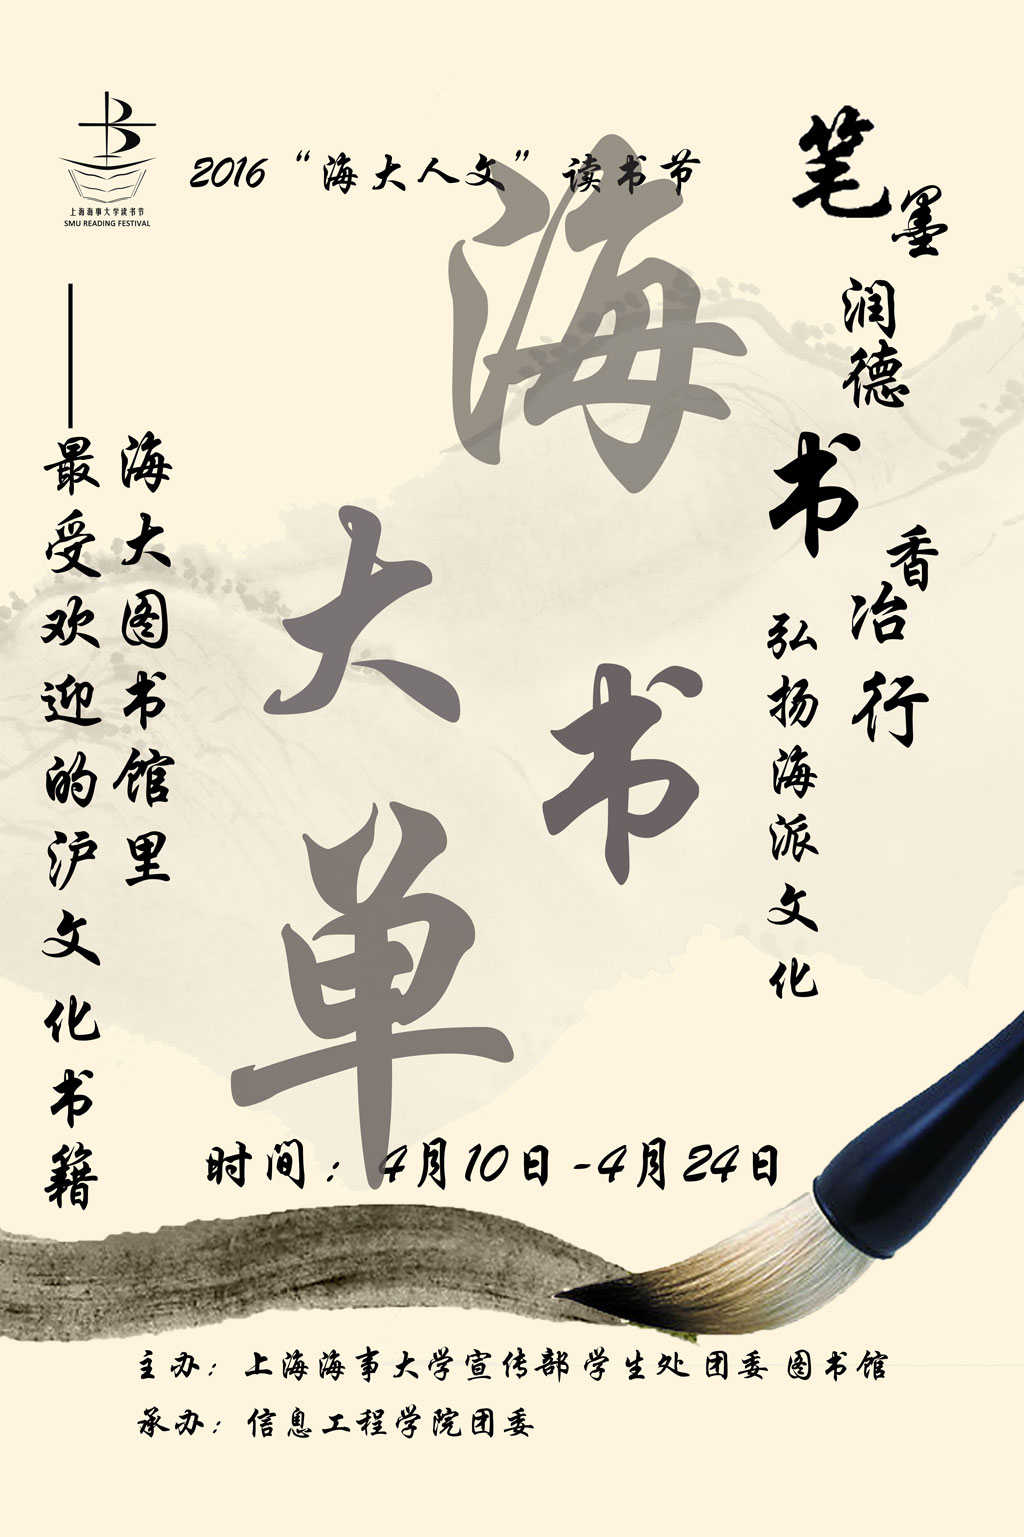 上海海事大学读书节
SMU READING FESTIVAL
2016“海大人文”读书节
笔墨润德
书香冶行
弘扬海派文化
海大书单
海大图书馆里
——最受欢迎的沪文化书籍
时间：4月10日-4月24日
主办：上海海事大学宣传部学生处团委 图书馆
承办：信息工程学院团委